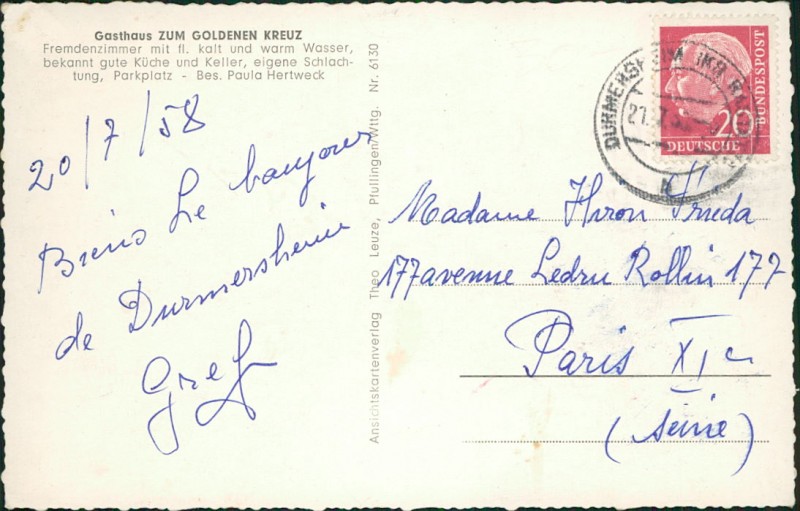 Gasthaus ZUM GOLDENEN KREUZ
Fremdenzimmer mit fl. kalt und warm Wasser,
bekannt gute Küche und Keller, eigene Schlach-
tung, Parkplatz - Bes. Paula Hertweck
20/7/58
Le
de Durmersheim
Ansichtskartenverlag Theo Leuze, Pfullingen/Wttg. Nr. 6130
DURMERSHEIM
20
DEUTSCHE
BUNDESPOST
Madame Hiron Frieda
177 avenue Ledru Rollin 177
Paris XI e
(Seine)